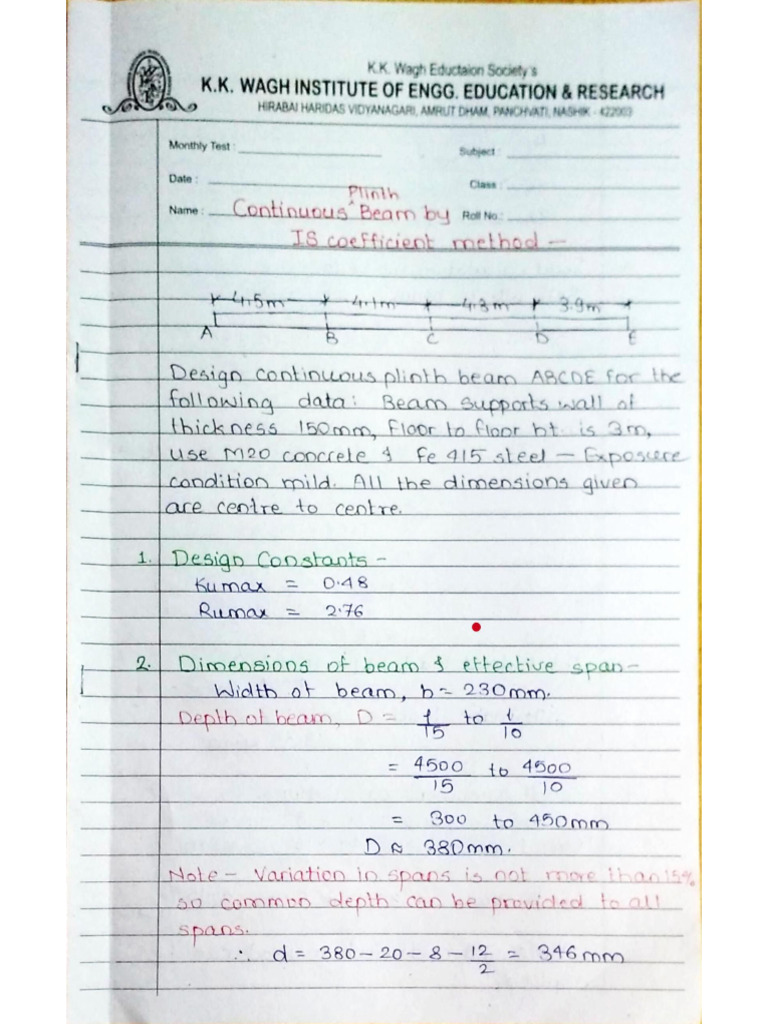 K.K. Wagh Eductaion Society's
K.K. WAGH INSTITUTE OF ENGG. EDUCATION & RESEARCH
HIRABAI HARIDAS VIDYANAGARI, AMRUT DHAM, PANCHVATI, NASHIK - 422003
Monthly Test : Subject :
Date : Class :
Plinth
Name : Continuous ^ Beam by Roll No.:
IS coefficient method –
4.5m 4.1m 4.3m 3.9m
A B C D E
Design continuous plinth beam ABCDE for the
following data: Beam supports wall of
thickness 150mm, Floor to floor ht. is 3m,
use M20 concrete & Fe 415 steel – Exposure
condition mild. All the dimensions given
are centre to centre.
1. Design Constants –
Kumax = 0.48
Rumax = 2.76
2. Dimensions of beam & effective span –
Width of beam, b = 230mm.
Depth of beam, D = 1/15 to 1/10
= 4500/15 to 4500/10
= 300 to 450mm
D ≈ 380mm.
Note – Variation in spans is not more than 15%
so common depth can be provided to all
spans.
∴ d = 380 – 20 – 8 – 12/2 = 346mm